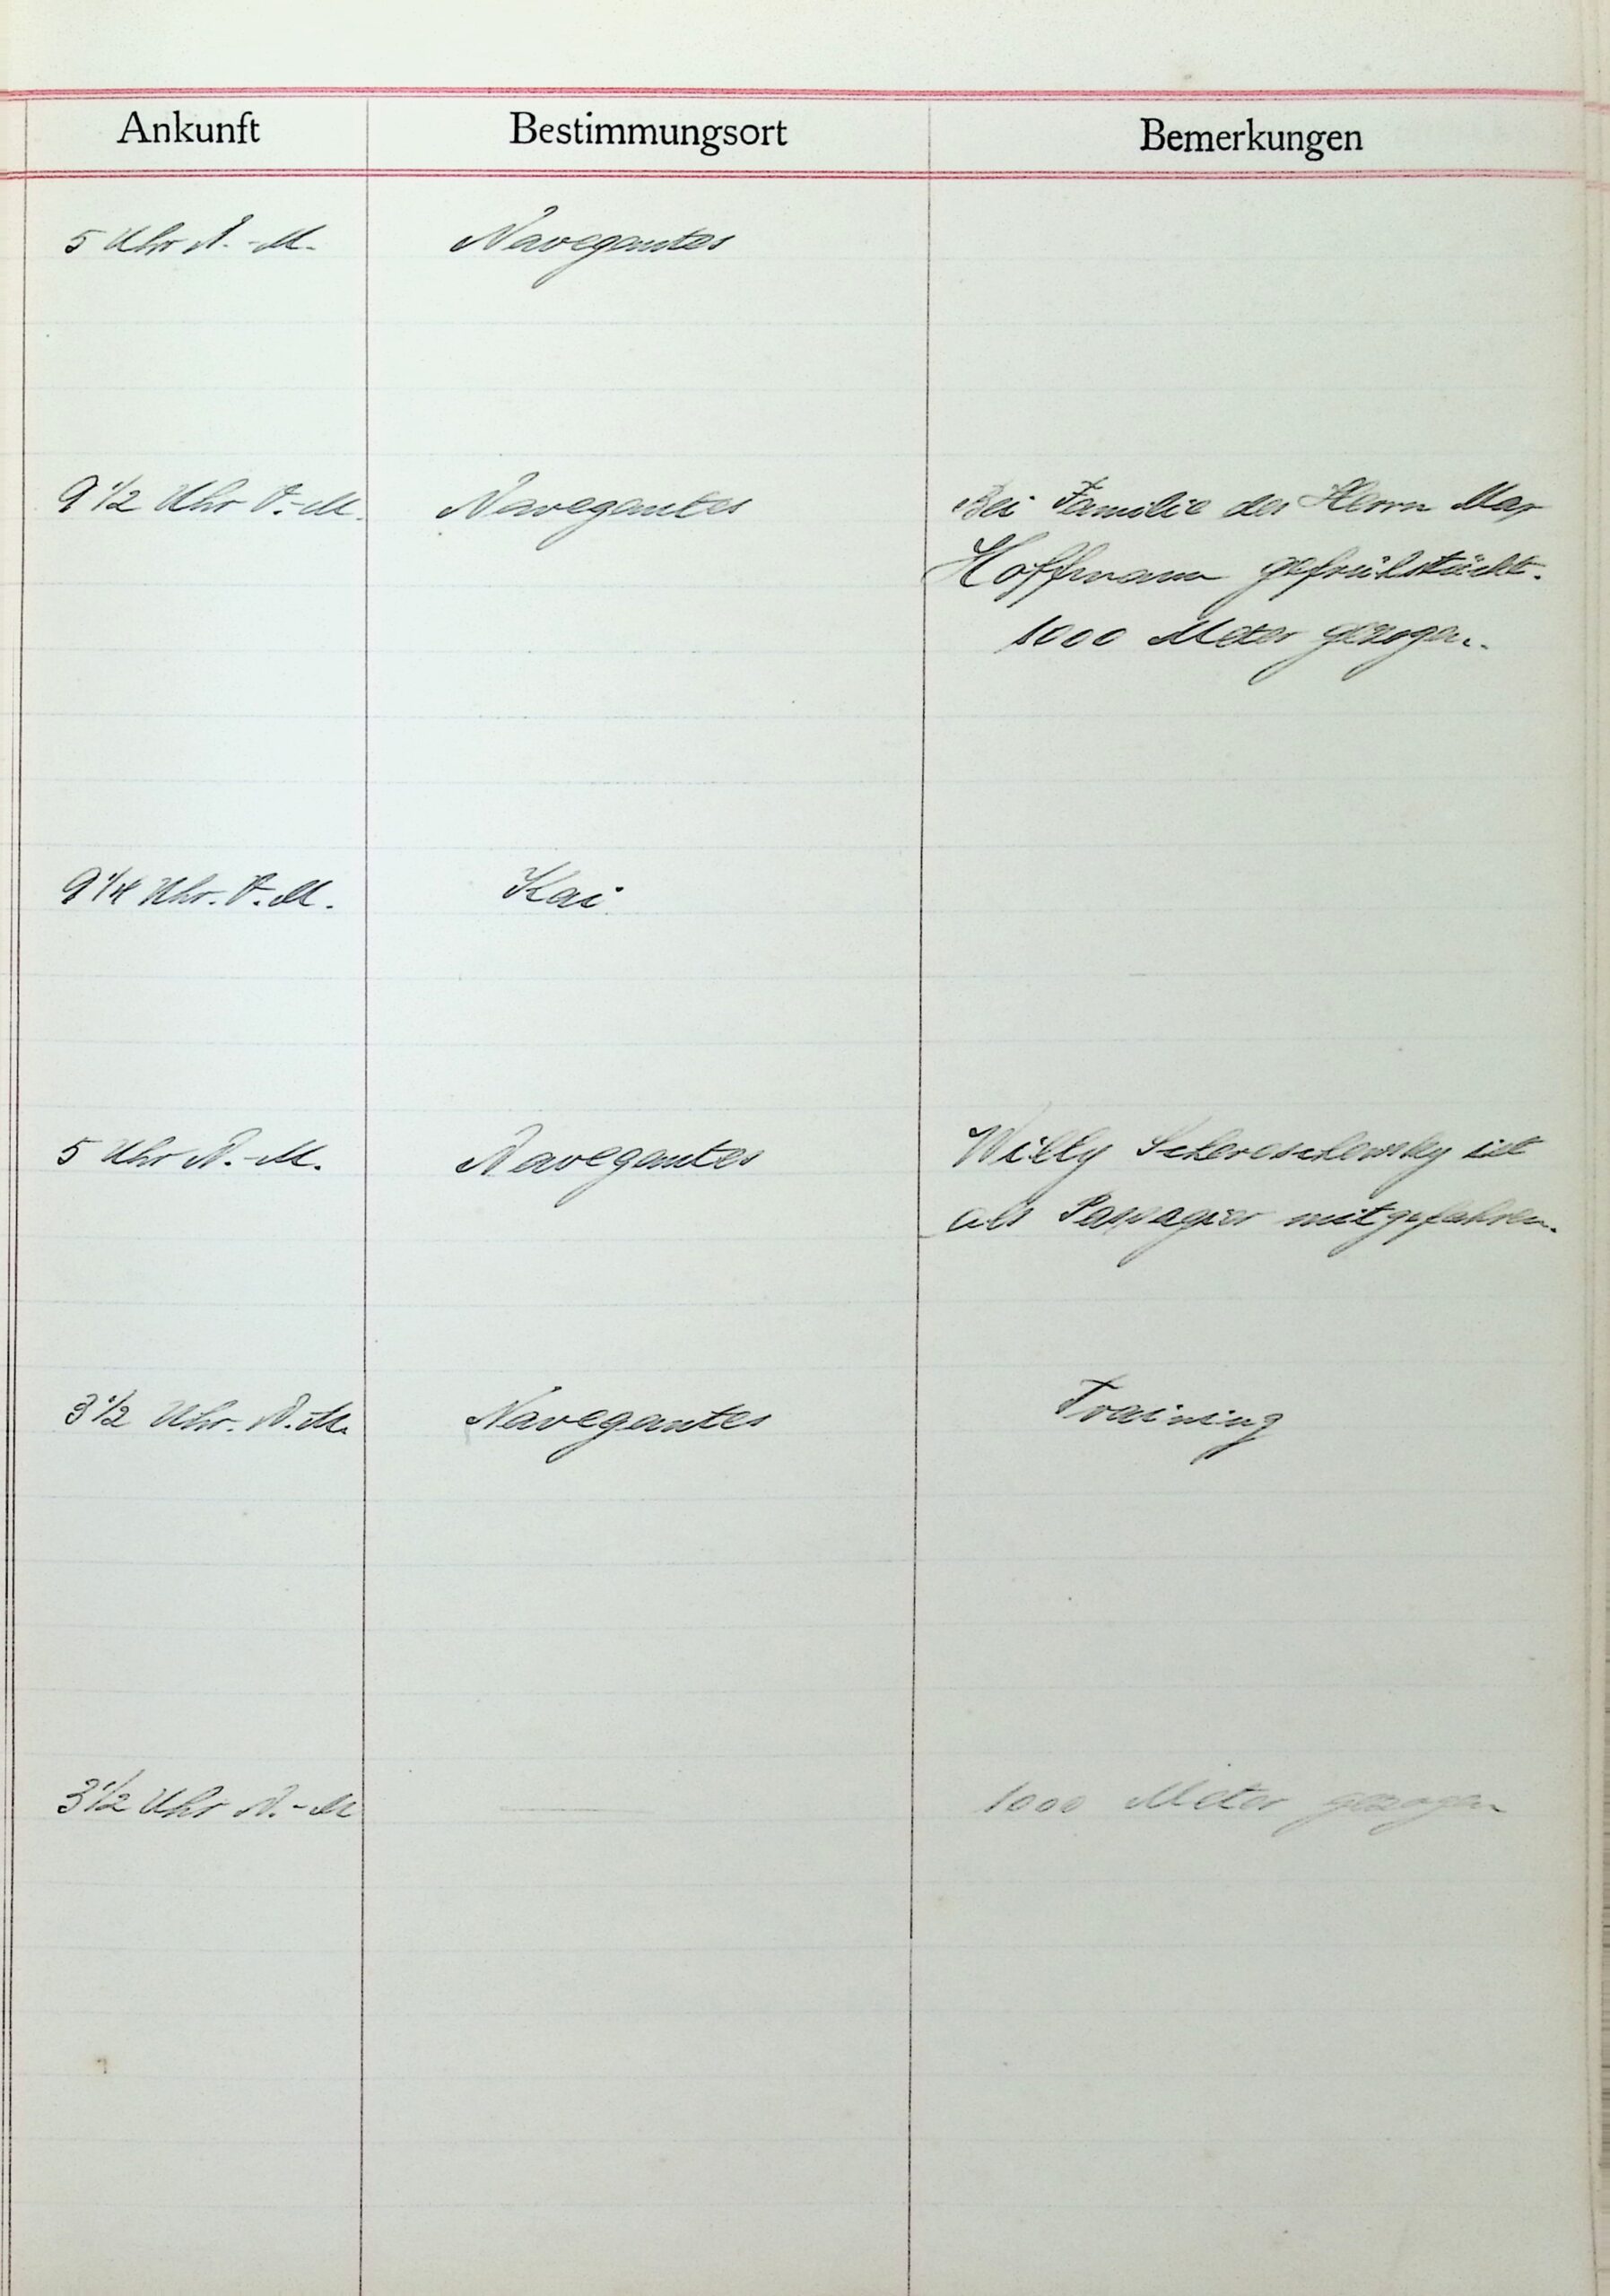 Ankunft Bestimmungsort Bemerkungen
5 Uhr N.-M. Navegantes
9 1/2 Uhr V.-M. Navegantes Bei Familie des Herrn Max
Hoffmann gefrühstückt.
1000 Meter gezogen.
9 1/4 Uhr. V.M. Kai
5 Uhr N.-M. Navegantes Willy ist
als Passagier mitgefahren.
3 1/2 Uhr. N.M. Navegantes Training
3 1/2 Uhr N.-M 1000 Meter gezogen